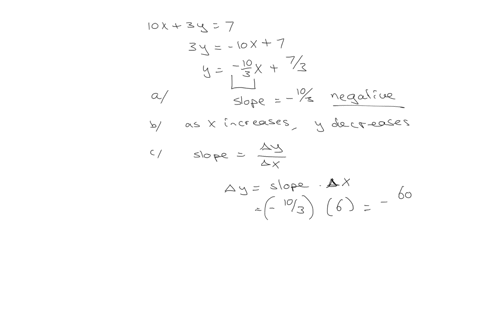 10x + 3y = 7
3y = -10x + 7
y = -10/3 x + 7/3
a/ slope = -10/3 negative
b/ as x increases, y decreases
c/ slope = Δy/Δx
Δy = slope · Δx
= (-10/3) (6) = - 60